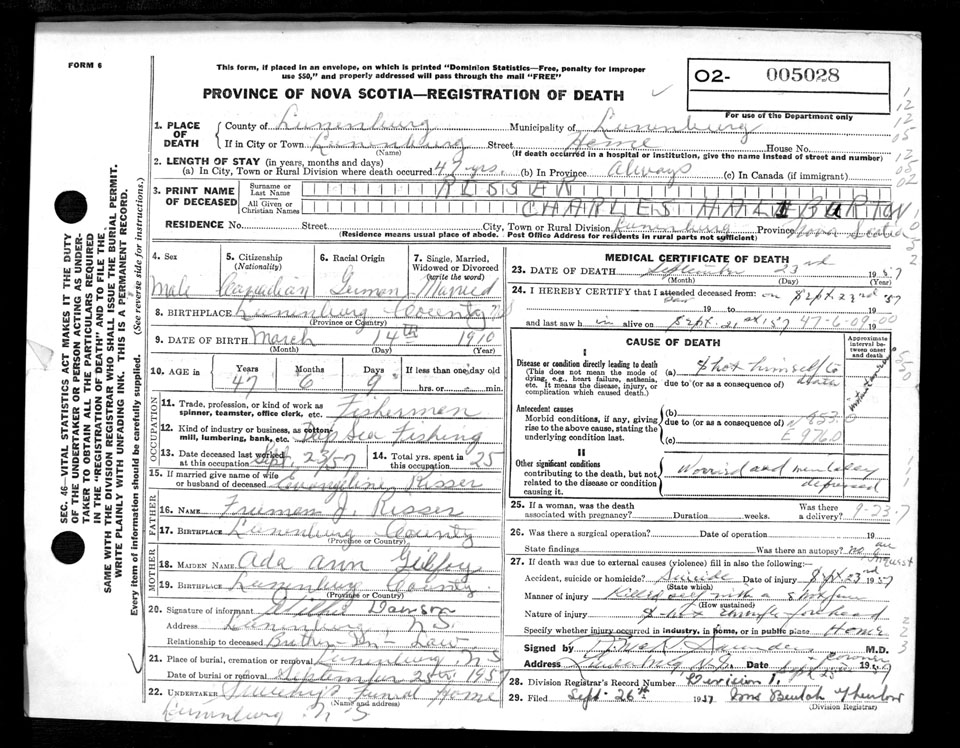 FORM 6
This form, if placed in an envelope, on which is printed "Dominion Statistics—Free, penalty for improper
use $50," and properly addressed will pass through the mail "FREE"
PROVINCE OF NOVA SCOTIA—REGISTRATION OF DEATH
02- 005028
For use of the Department only
1. PLACE OF DEATH
County of Lunenburg Municipality of Lunenburg
If in City or Town Lunenburg Street Home House No.
(Name) (If death occurred in a hospital or institution, give the name instead of street and number)
2. LENGTH OF STAY (in years, months and days)
(a) In City, Town or Rural Division where death occurred 42 yrs. (b) In Province Always (c) In Canada (if immigrant)
3. PRINT NAME OF DECEASED
Surname or Last Name RISSER
All Given or Christian Names CHARLES HALIBURTON
RESIDENCE No. Street City, Town or Rural Division Lunenburg Province Nova Scotia
(Residence means usual place of abode. Post Office Address for residents in rural parts not sufficient)
4. Sex 5. Citizenship (Nationality) 6. Racial Origin 7. Single, Married, Widowed or Divorced (write the word)
Male Canadian German Married
8. BIRTHPLACE Lunenburg County N.S
(Province or Country)
9. DATE OF BIRTH March 14th 1910
(Month) (Day) (Year)
10. AGE in Years Months Days If less than one day old
47 6 9 hrs. or min.
OCCUPATION
11. Trade, profession, or kind of work as spinner, teamster, office clerk, etc. Fisherman
12. Kind of industry or business, as cotton-mill, lumbering, bank, etc. Deep Sea Fishing
13. Date deceased last worked at this occupation Sept. 23/57 14. Total yrs. spent in this occupation 25
15. If married give name of wife or husband of deceased Evangeline Risser
FATHER
16. NAME Freeman J. Risser
17. BIRTHPLACE Lunenburg County
(Province or Country)
MOTHER
18. MAIDEN NAME Ada Ann Gilfoy
19. BIRTHPLACE Lunenburg County
(Province or Country)
20. Signature of informant Dawson
Address Lunenburg N.S.
Relationship to deceased Brother-In-Law
21. Place of burial, cremation or removal Lunenburg N S
Date of burial or removal September 25th 1957
22. UNDERTAKER Funeral Home
(Name and address)
Lunenburg N S
MEDICAL CERTIFICATE OF DEATH
23. DATE OF DEATH September 23rd 1957
(Month) (Day) (Year)
24. I HEREBY CERTIFY that I attended deceased from: on Sept 23rd '57
19 to 19
and last saw him alive on Sept. 21st 57 47-6-09-00 19
CAUSE OF DEATH
Approximate interval between onset and death
I
Disease or condition directly leading to death
(This does not mean the mode of dying, e.g., heart failure, asthenia, etc. It means the disease, injury, or complication which caused death.)
(a) Shot himself to death
due to (or as a consequence of)
Antecedent causes
Morbid conditions, if any, giving rise to the above cause, stating the underlying condition last.
(b)
due to (or as a consequence of) N 853.0
(c) E 976.0
II
Other significant conditions
contributing to the death, but not related to the disease or condition causing it.
Worried and mentally depressed
25. If a woman, was the death associated with pregnancy? Duration weeks. Was there a delivery? 9-23-7
26. Was there a surgical operation? Date of operation 19
State findings Was there an autopsy? no
an inquest
27. If death was due to external causes (violence) fill in also the following:
Accident, suicide or homicide? Suicide Date of injury Sept 23rd 1957
(State which)
Manner of injury Killed self with a shotgun
(How sustained)
Nature of injury Shot through forehead
Specify whether injury occurred in industry, in home, or in public place Home
Signed by M.D.
Coroner
Address Lunenburg N.S. Date Sept 25 1957
28. Division Registrar's Record Number Division 1.
29. Filed Sept. 26th 1957
(Division Registrar)
SEC. 46—VITAL STATISTICS ACT MAKES IT THE DUTY
OF THE UNDERTAKER OR PERSON ACTING AS UNDER-
TAKER TO OBTAIN ALL THE PARTICULARS REQUIRED
IN THE "REGISTRATION OF DEATH" AND TO FILE THE
SAME WITH THE DIVISION REGISTRAR WHO SHALL ISSUE THE BURIAL PERMIT.
WRITE PLAINLY WITH UNFADING INK. THIS IS A PERMANENT RECORD.
Every item of information should be carefully supplied. (See reverse side for instructions.)